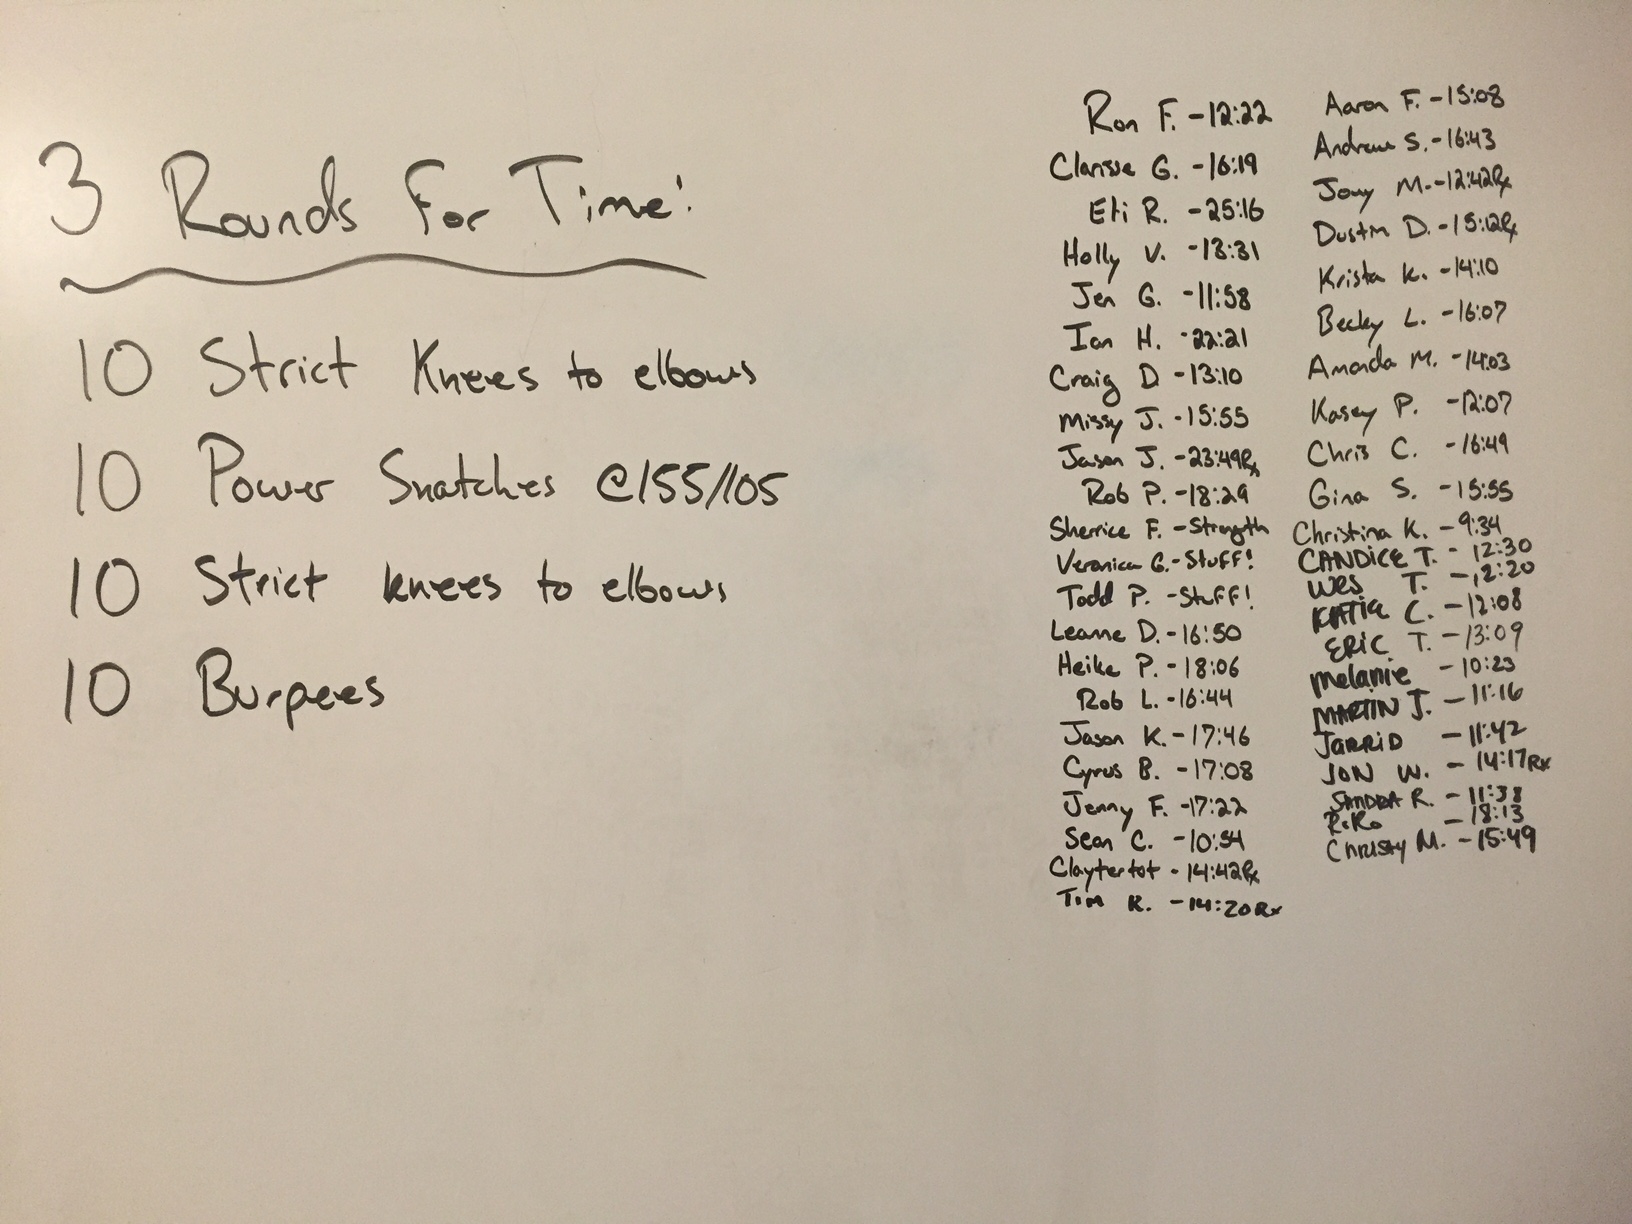 3 Rounds For Time:
10 Strict Knees to elbows
10 Power Snatches @155/105
10 Strict knees to elbows
10 Burpees
Ron F. -12:22
Clarisse G. -16:19
Eli R. -25:16
Holly V. -13:31
Jen G. -11:58
Ian H. -22:21
Craig D -13:10
Missy J. -15:55
Jason J. -23:49Rx
Rob P. -18:29
Sherrice F. -Strength
Veronica G.-Stuff!
Todd P. -Stuff!
Leanne D.-16:50
Heike P. -18:06
Rob L. -16:44
Jason K.-17:46
Cyrus B. -17:08
Jenny F. -17:22
Sean C. -10:54
Claytertot -14:42Rx
Tim K. -14:20Rx
Aaron F. -15:08
Andrew S.-16:43
Jony M.-12:42Rx
Dustin D.-15:12Rx
Krista K. -14:10
Becky L. -16:07
Amanda M. -14:03
Kasey P. -12:07
Chris C. -16:49
Gina S. -15:55
Christina K. -9:34
CANDICE T. - 12:30
Wes T. -12:20
KATIE C. -12:08
ERIC T. -13:09
Melanie -10:23
MARTIN J. -11:16
JARRID -11:42
JON W. - 14:17Rx
SANDRA R. -11:38
RiRo -18:13
Christy M. -15:49